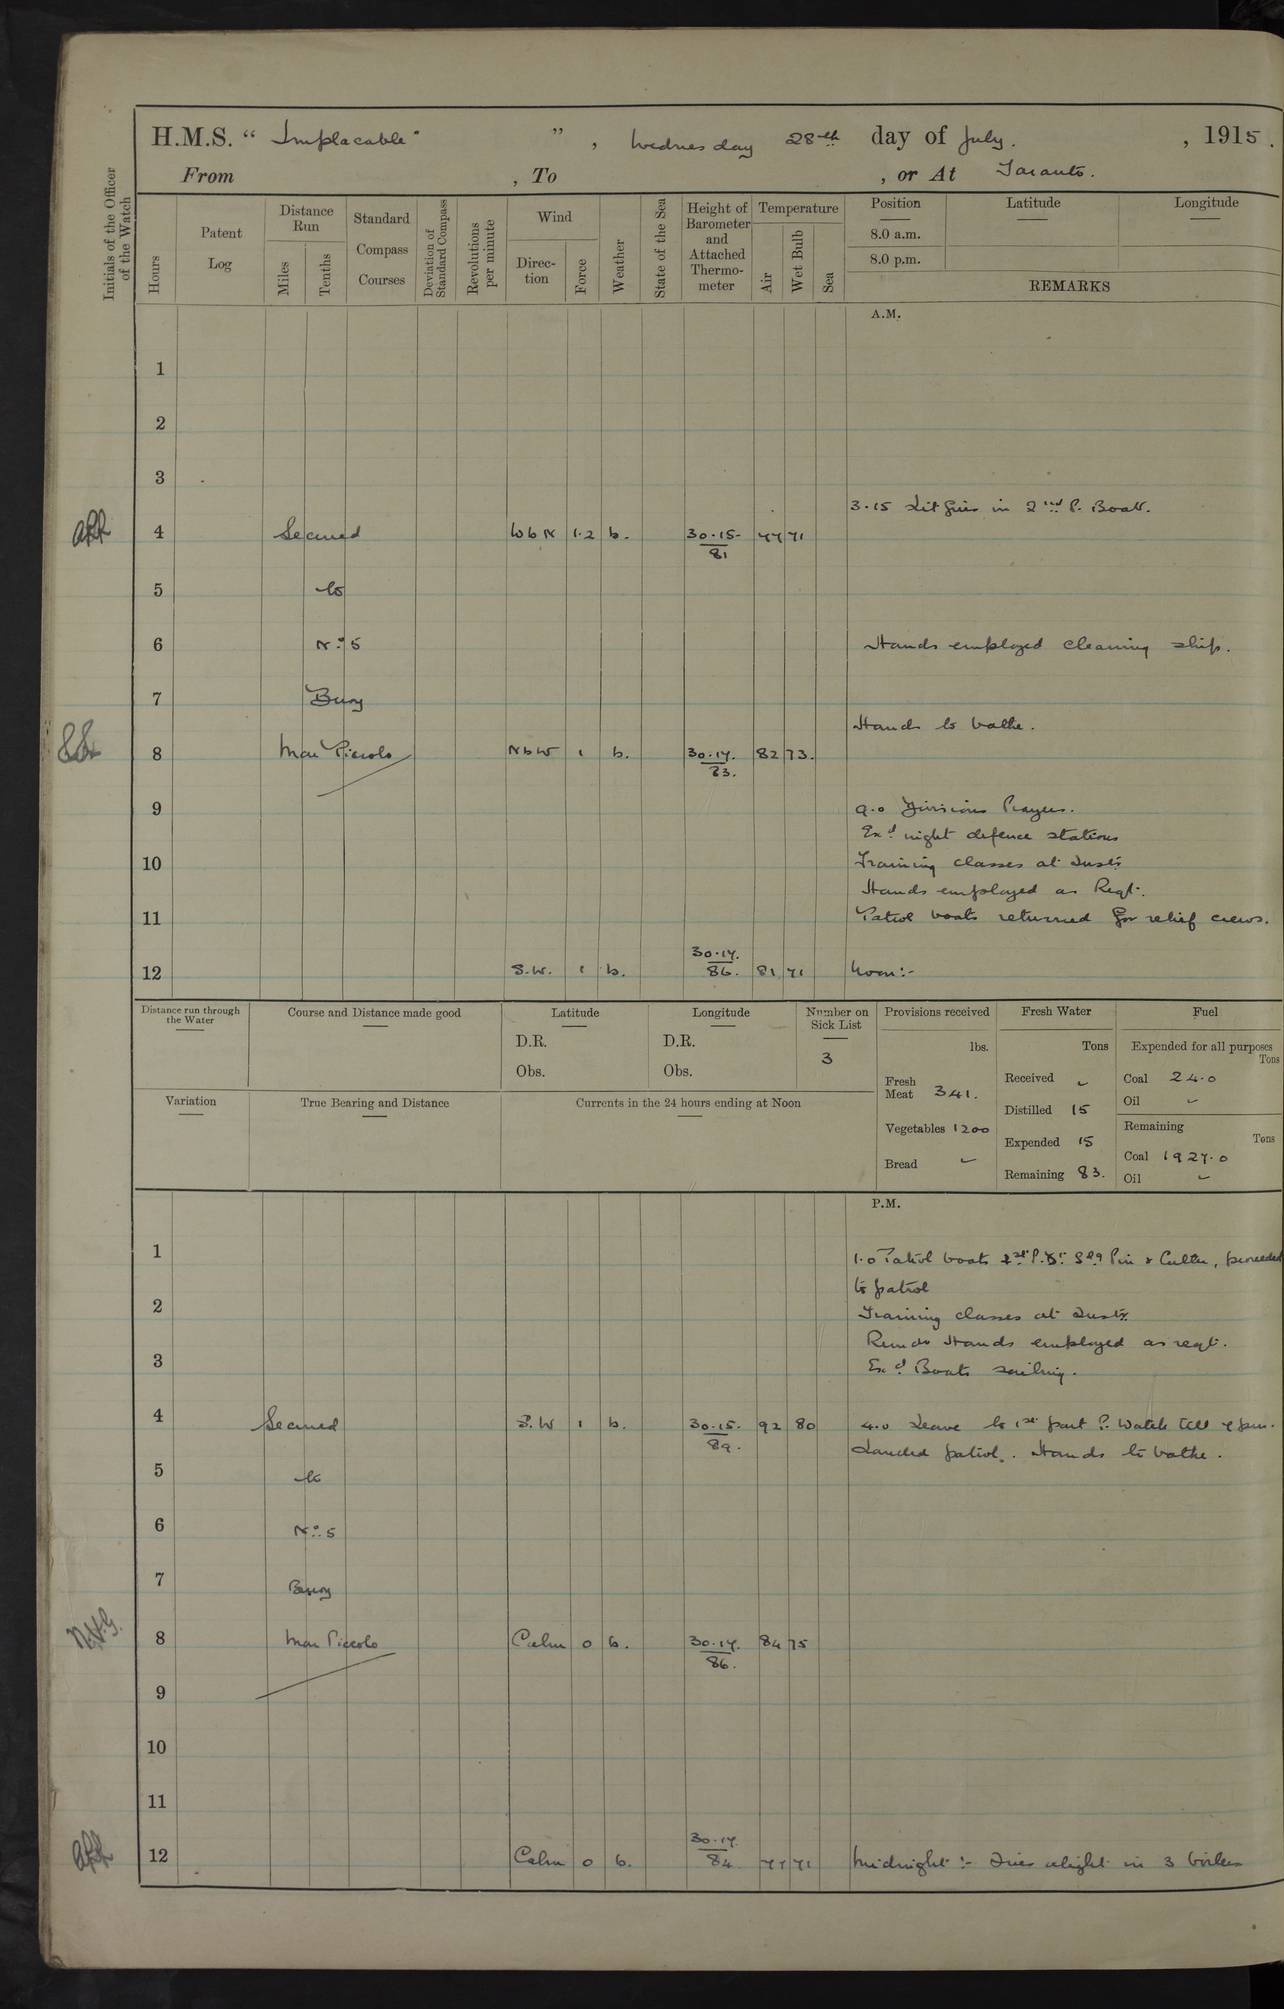 H.M.S. “ Implacable" ”, Wednesday 28th day of July. , 1915.
From , To , or At Taranto.
Initials of the Officer of the Watch
Hours
Patent Log
Distance Run
Miles
Tenths
Standard Compass Courses
Deviation of Standard Compass
Revolutions per minute
Wind
Direction
Force
Weather
State of the Sea
Height of Barometer and Attached Thermometer
Temperature
Air
Wet Bulb
Sea
Position
8.0 a.m.
8.0 p.m.
Latitude
Longitude
REMARKS
A.M.
1
2
3
3.15 Lit fires in 2nd P. Boat.
4 Secured W b N 1.2 b. 30.15. 77 71
81
5 to
6 No. 5 Hands employed cleaning ship.
7 Buoy
Hands to bathe.
8 Mar Piccolo N b W 1 b. 30.17. 82 73.
83.
9 9.0 Divisions Prayers.
Exd night defence stations
10 Training classes at Instn
Hands employed as Reqt.
11 Patrol boats returned for relief crews.
30.17.
12 S.W. 1 b. 86. 81 71 Noon:-
Distance run through the Water
Course and Distance made good
Latitude
D.R.
Obs.
Longitude
D.R.
Obs.
Number on Sick List
3
Provisions received
lbs.
Fresh Meat 341.
Vegetables 1200
Bread -
Fresh Water
Tons
Received -
Distilled 15
Expended 15
Remaining 83.
Fuel
Expended for all purposes
Tons
Coal 24.0
Oil -
Remaining
Tons
Coal 1927.0
Oil -
Variation
True Bearing and Distance
Currents in the 24 hours ending at Noon
P.M.
1 1.0 Patrol boats Pin & Cutter, proceeded
to patrol
2 Training classes at Instn.
Remdr Hands employed as reqt.
3 Exd Boats sailing.
4 Secured S.W 1 b. 30.15. 92 80 4.0 Leave to 1st part P. Watch till 7 pm.
89.
Landed patrol. Hands to bathe.
5 to
6 No. 5
7 Buoy
8 Mar Piccolo Calm 0 b. 30.17. 84 75
86.
9
10
11
30.17.
12 Calm 0 b. 84 77 71 Midnight:- Fires alight in 3 boilers